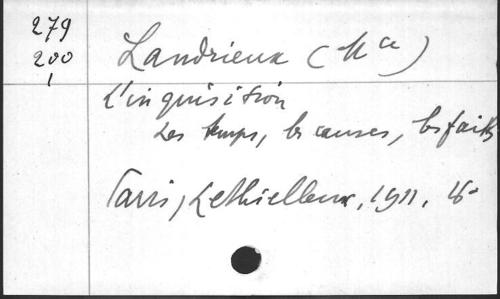 279
200
1
Landrieux (Mce)
L'inquisition
Les temps, les causes, les faits
Paris, Lethielleux, 1911, 16°